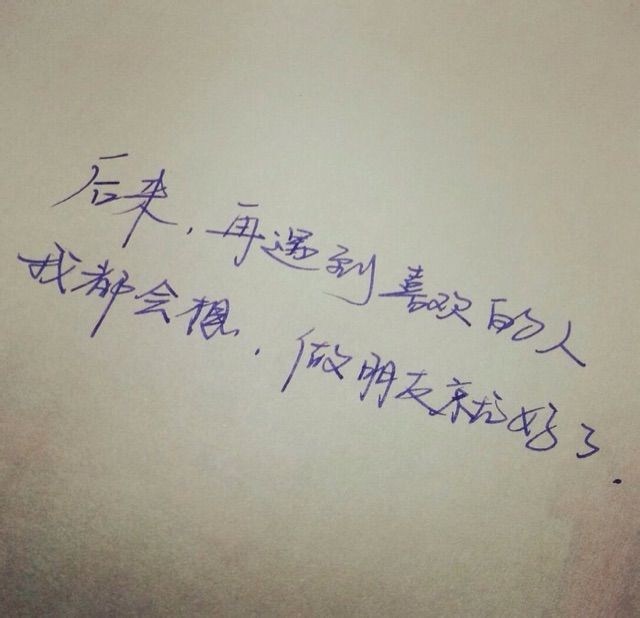 后来，再遇到喜欢的人
我都会想，做朋友就好了.